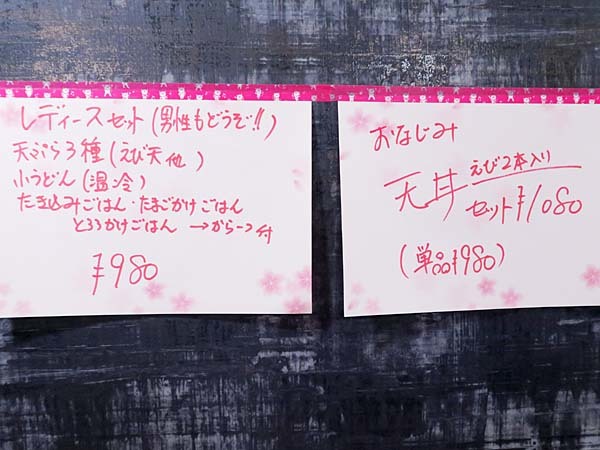 レディースセット(男性もどうぞ!!)
天ぷら3種(えび天他)
小うどん(温冷)
たき込みごはん・たまごかけごはん
とろろかけごはん →から一つ付
¥980
おなじみ
天丼 えび2本入り
セット¥1080
(単品¥980)